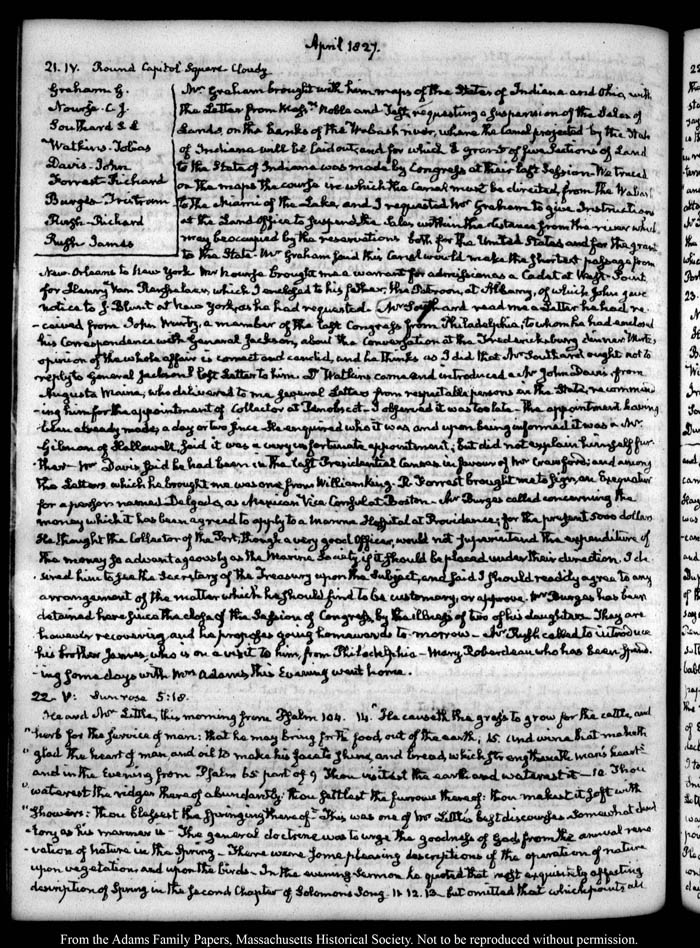 April 1827.
21. IV. Round Capitol Square Cloudy
Graham G.
Nourse C. J.
Southard S L
Watkins. Tobias
Davis. John
Forrest Richard
Burges Tristram
Rush Richard
Rush James
Mr Graham brought with him maps of the States of Indiana and Ohio, with
the Letter from Messrs Noble and Test, requesting a suspension of the Sales of
Lands, on the banks of the Wabash river, where the Canal projected by the State
of Indiana will be laid out, and for which a grant of five Sections of Land
to the State of Indiana was made by Congress at their last Session. We traced
on the maps the course in which the Canal must be directed, from the Wabash
to the Miami of the Lake, and I requested Mr Graham to give Instructions
at the Land Office to suspend the Sales within the distance from the river which
may be occupied by the reservations both for the United States and for the grant
to the State. Mr Graham said this Canal would make the shortest passage from
New Orleans to New York. Mr Nourse brought me a warrant for admission as a Cadet at West-Point
for Henry Van Rensselaer, which I enclosed to his father, the Patroon, at Albany, of which John gave
notice to J. Blunt at New York, as he had requested. Mr Southard read me a Letter he had re-
-ceived from John Wurtz, a member of the last Congress from Philadelphia, to whom he had enclosed
his Correspondence with General Jackson, about the Conversation at the Fredericksburg dinner. Wurtz's
opinion of the whole affair is correct and candid, and he thinks as I did that Mr Southard ought not to
reply to General Jackson's last Letter to him. Dr Watkins came and introduced a Mr John Davis, from
Augusta Maine, who delivered to me several Letters from respectable persons in the State, recommend-
-ing him for the appointment of Collector at Penobscot. I observed it was too late. The appointment having
been already made, a day or two since. He enquired who it was and upon being informed it was a Mr
Gilman of Hallowell, said it was a very unfortunate appointment; but did not explain himself fur-
ther. Mr Davis said he had been in the last Presidential Canvas in favour of Mr Crawford; and among
the Letters which he brought me was one from William King. R. Forrest brought me to sign, an Exequatur
for a person named Delgado, as Mexican Vice Consul at Boston. Mr Burges called concerning the
money which it has been agreed to apply to a Marine Hospital at Providence; for the present 5000 dollars
He thought the Collector of the Port, though a very good Officer, would not superintend the expenditure of
the money so advantageously as the Marine Society, if it should be placed under their direction. I de-
-sired him to see the Secretary of the Treasury upon the subject, and said I should readily agree to any
arrangement of the matter which he should find to be customary, or approve. Mr Burges has been
detained here since the close of the Session of Congress, by the illness of two of his daughters. They are
however recovering and he proposes going homewards to morrow. Mr Rush called to introduce
his brother James, who is on a visit to him, from Philadelphia. Mary Roberdeau who has been spend-
-ing some days with Mrs Adams, this Evening went home.
22. V: Sun rose 5:18.
Heard Mr Little, this morning from Psalm 104. 14. "He causeth the grass to grow for the cattle, and
"herb for the service of man: that he may bring forth food out of the earth; 15. And wine that maketh
"glad the heart of man, and oil to make his face to shine, and bread, which strengtheneth man's heart"
and in the Evening from Psalm 65 part of 9 Thou visitest the earth and waterest it— 10. Thou
"waterest the ridges thereof abundantly: thou settlest the furrows thereof: thou makest it soft with
"showers: thou blessest the springing thereof." This was one of Mr Little's best discourses. Somewhat
tory as his manner is. The general doctrine was to urge the goodness of God, from the annual reno-
-vation of nature in the Spring. There were some pleasing descriptions of the operation of nature
upon vegetation, and upon the birds. In the evening Sermon he quoted that most exquisitely affecting
description of Spring in the second Chapter of Solomons Song. 11. 12. 13. but omitted that which points all
From the Adams Family Papers, Massachusetts Historical Society. Not to be reproduced without permission.